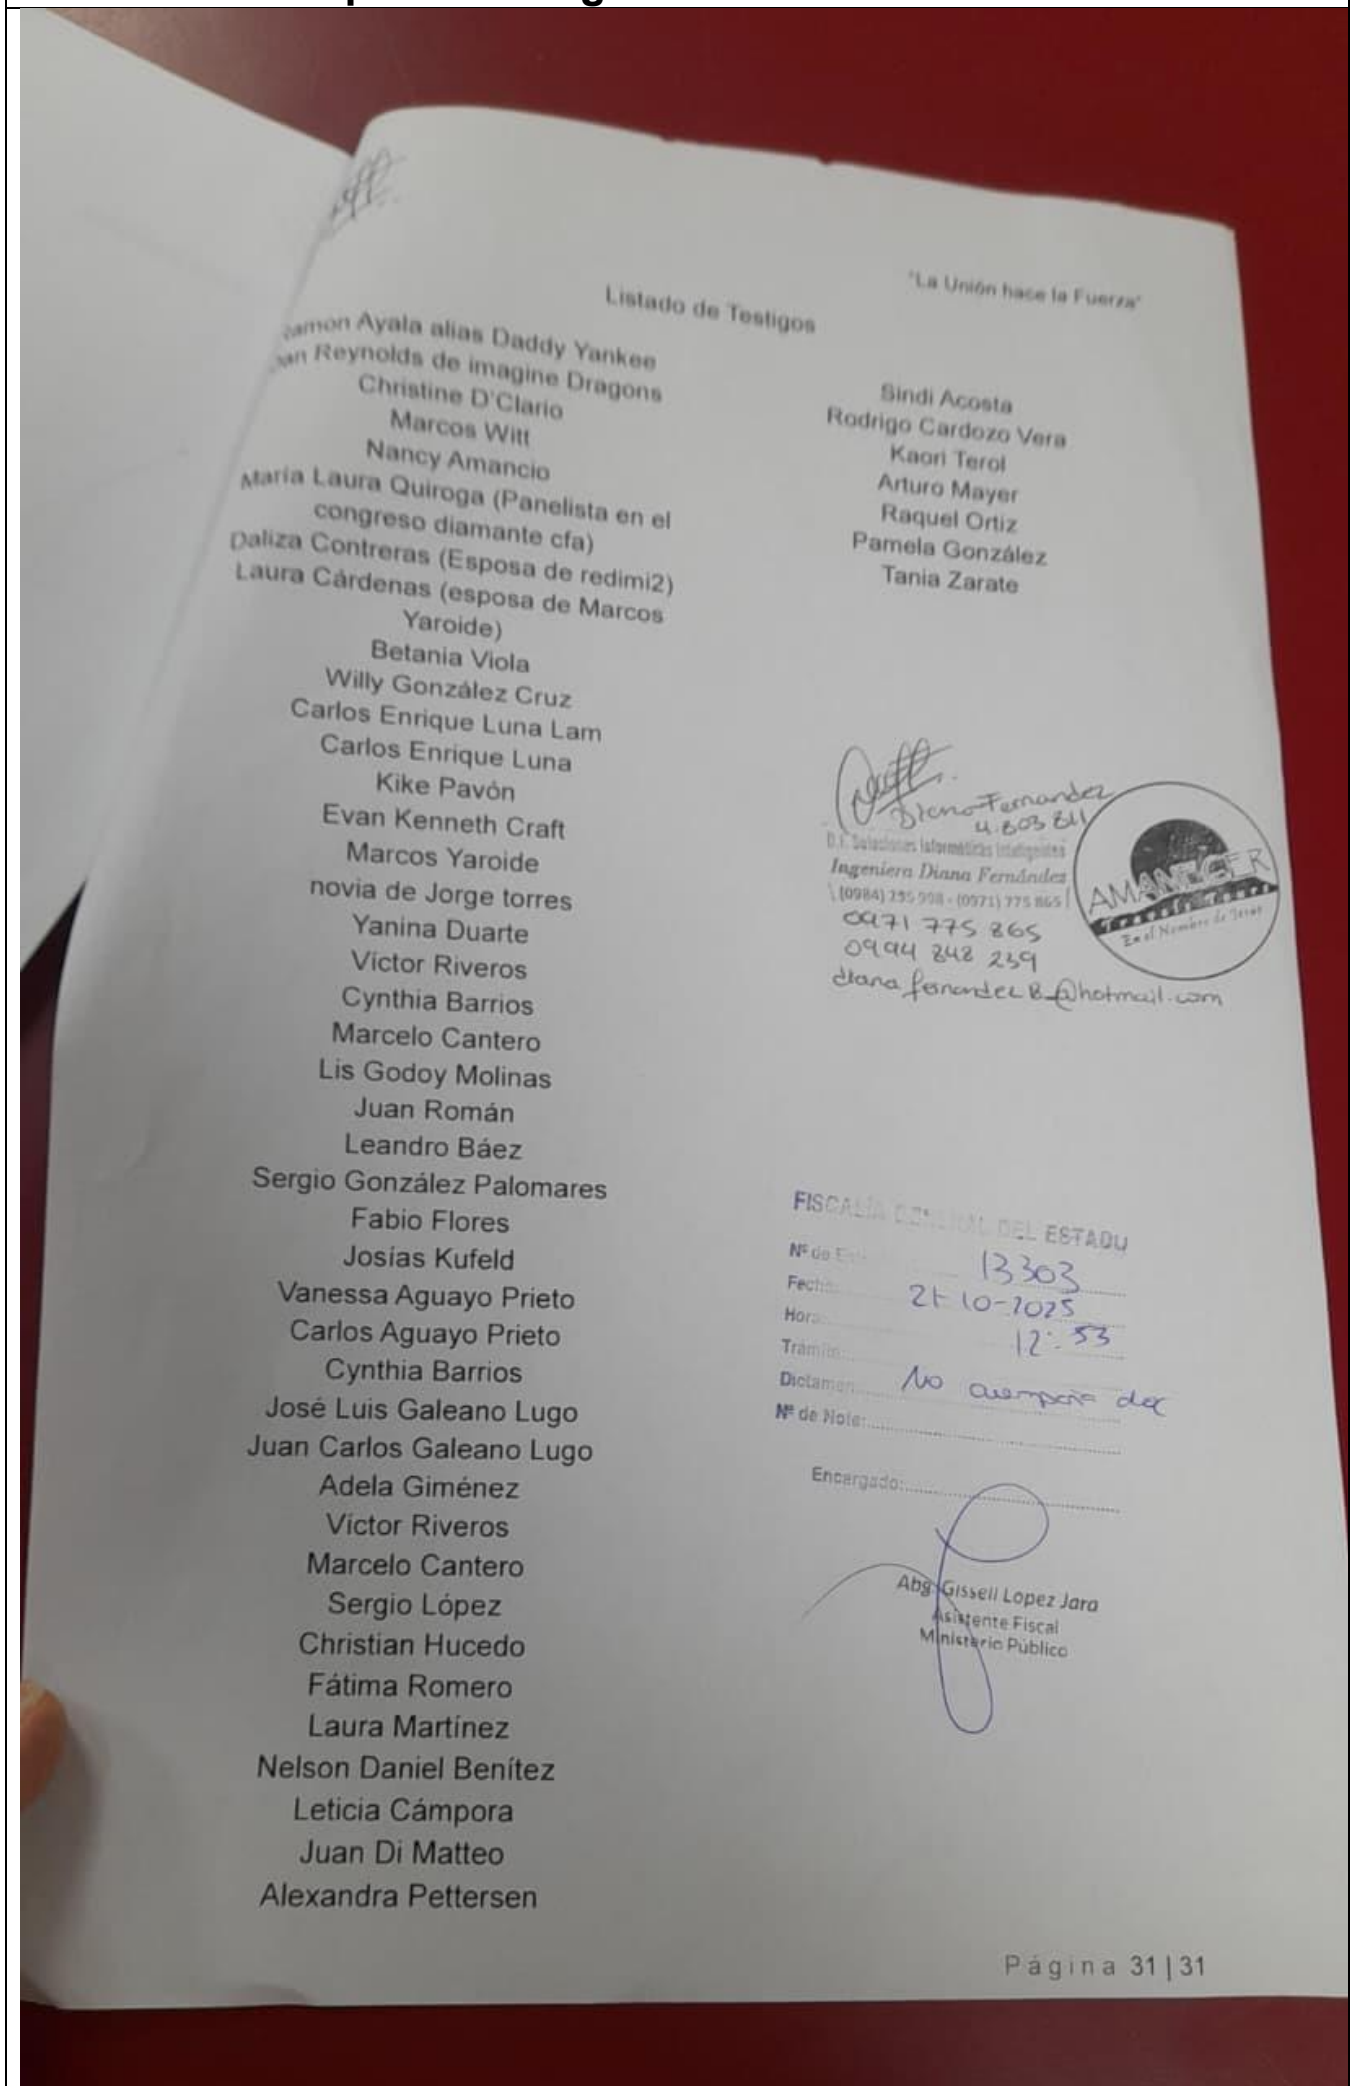 "La Unión hace la Fuerza"
Listado de Testigos
amon Ayala alias Daddy Yankee
an Reynolds de imagine Dragons
Christine D'Clario
Marcos Witt
Nancy Amancio
María Laura Quiroga (Panelista en el
congreso diamante cfa)
Daliza Contreras (Esposa de redimi2)
Laura Cárdenas (esposa de Marcos
Yaroide)
Betania Viola
Willy González Cruz
Carlos Enrique Luna Lam
Carlos Enrique Luna
Kike Pavón
Evan Kenneth Craft
Marcos Yaroide
novia de Jorge torres
Yanina Duarte
Víctor Riveros
Cynthia Barrios
Marcelo Cantero
Lis Godoy Molinas
Juan Román
Leandro Báez
Sergio González Palomares
Fabio Flores
Josías Kufeld
Vanessa Aguayo Prieto
Carlos Aguayo Prieto
Cynthia Barrios
José Luis Galeano Lugo
Juan Carlos Galeano Lugo
Adela Giménez
Víctor Riveros
Marcelo Cantero
Sergio López
Christian Hucedo
Fátima Romero
Laura Martínez
Nelson Daniel Benítez
Leticia Cámpora
Juan Di Matteo
Alexandra Pettersen
Sindi Acosta
Rodrigo Cardozo Vera
Kaori Terol
Arturo Mayer
Raquel Ortiz
Pamela González
Tania Zarate
Diana Fernandez
4.803 811
D.F. Soluciones Informáticas Inteligentes
Ingeniera Diana Fernández
(0984) 295 998 - (0971) 775 865
0971 775 865
0994 848 239
diana fernandez B_@hotmail.com
AMANECER
En el Nombre de Jesus
FISCALÍA GENERAL DEL ESTADO
Nº de 13303
Fecha: 21-10-2025
Hora: 12:53
Tramite:
Dictamen: No acompaña doc
Nº de Note:
Encargado:
Abg. Gissell Lopez Jara
Asistente Fiscal
Ministerio Público
Página 31|31